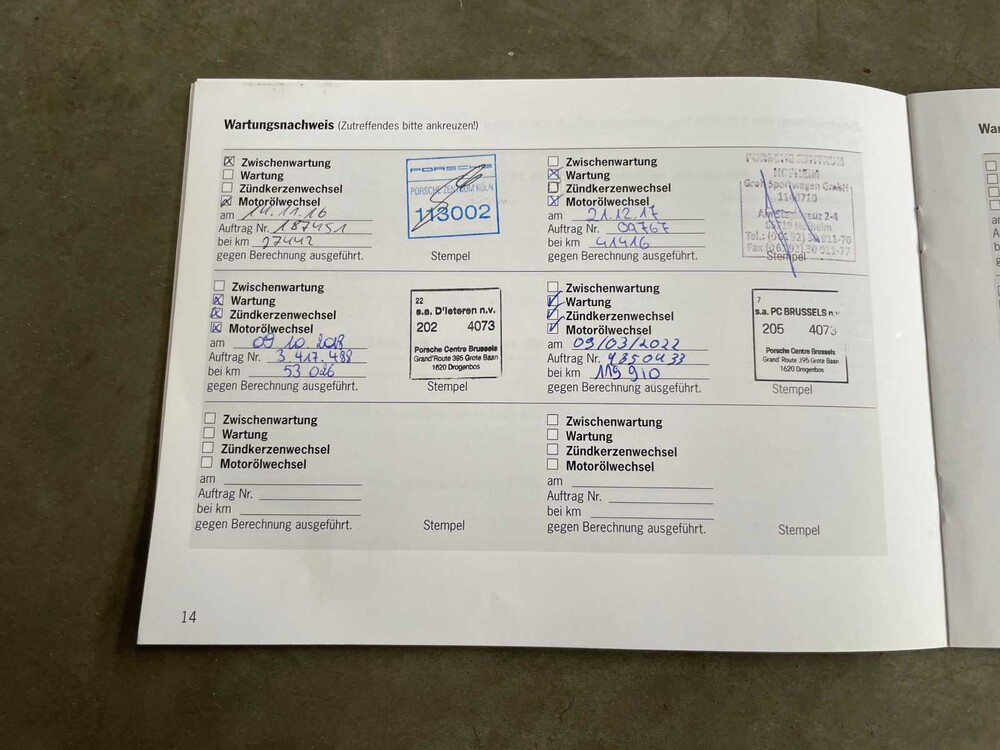 Wartungsnachweis (Zutreffendes bitte ankreuzen!)
Zwischenwartung
Wartung
Zündkerzenwechsel
Motorölwechsel
am 14.11.16
Auftrag Nr. 187451
bei km 27442
gegen Berechnung ausgeführt.
PORSCHE
PORSCHE ZENTRUM KÖLN
113002
Stempel
Zwischenwartung
Wartung
Zündkerzenwechsel
Motorölwechsel
am 21.12.17
Auftrag Nr. 09767
bei km 41416
gegen Berechnung ausgeführt.
PORSCHE ZENTRUM
HOFHEIM
Sportwagen GmbH
2-4
Hofheim
Stempel
Zwischenwartung
Wartung
Zündkerzenwechsel
Motorölwechsel
am 09 10 2018
Auftrag Nr. 3.417.488
bei km 53 026
gegen Berechnung ausgeführt.
22
s.a. D'Ieteren n.v.
202 4073
Porsche Centre Brussels
Grand'Route 395 Grote Baan
1620 Drogenbos
Stempel
Zwischenwartung
Wartung
Zündkerzenwechsel
Motorölwechsel
am 09/03/2022
Auftrag Nr. 4850433
bei km 119910
gegen Berechnung ausgeführt.
7
s.a. PC BRUSSELS n.v.
205 4073
Porsche Centre Brussels
Grand'Route 395 Grote Baan
1620 Drogenbos
Stempel
Zwischenwartung
Wartung
Zündkerzenwechsel
Motorölwechsel
am
Auftrag Nr.
bei km
gegen Berechnung ausgeführt.
Stempel
Zwischenwartung
Wartung
Zündkerzenwechsel
Motorölwechsel
am
Auftrag Nr.
bei km
gegen Berechnung ausgeführt.
Stempel
14
War